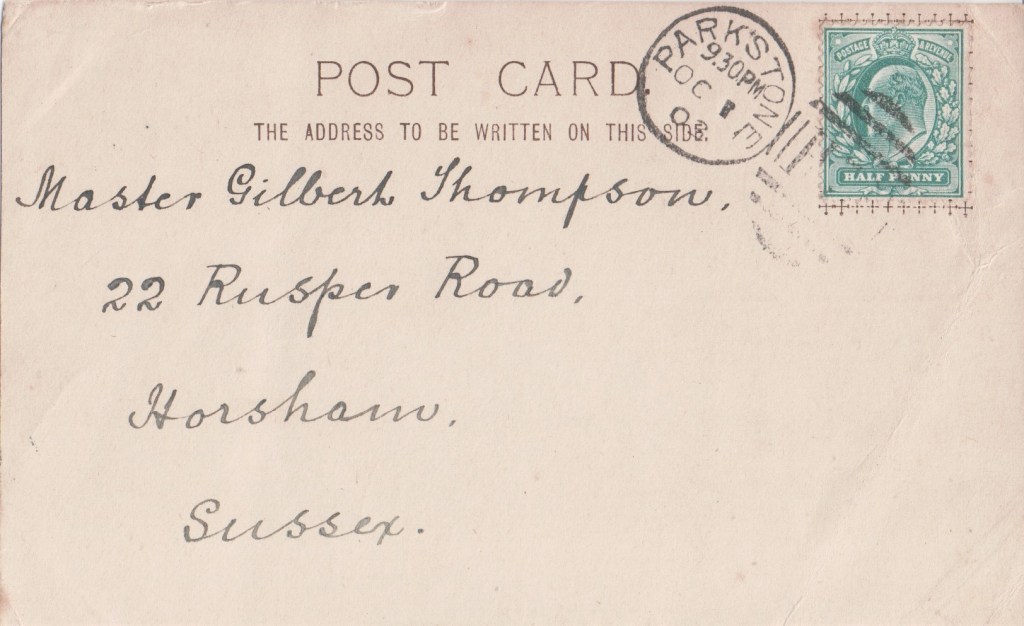 POST CARD.
THE ADDRESS TO BE WRITTEN ON THIS SIDE.
PARKSTONE
9.30PM
OC 1
POSTAGE & REVENUE
HALF PENNY
Master Gilbert Thompson,
22 Rusper Road,
Horsham.
Sussex.